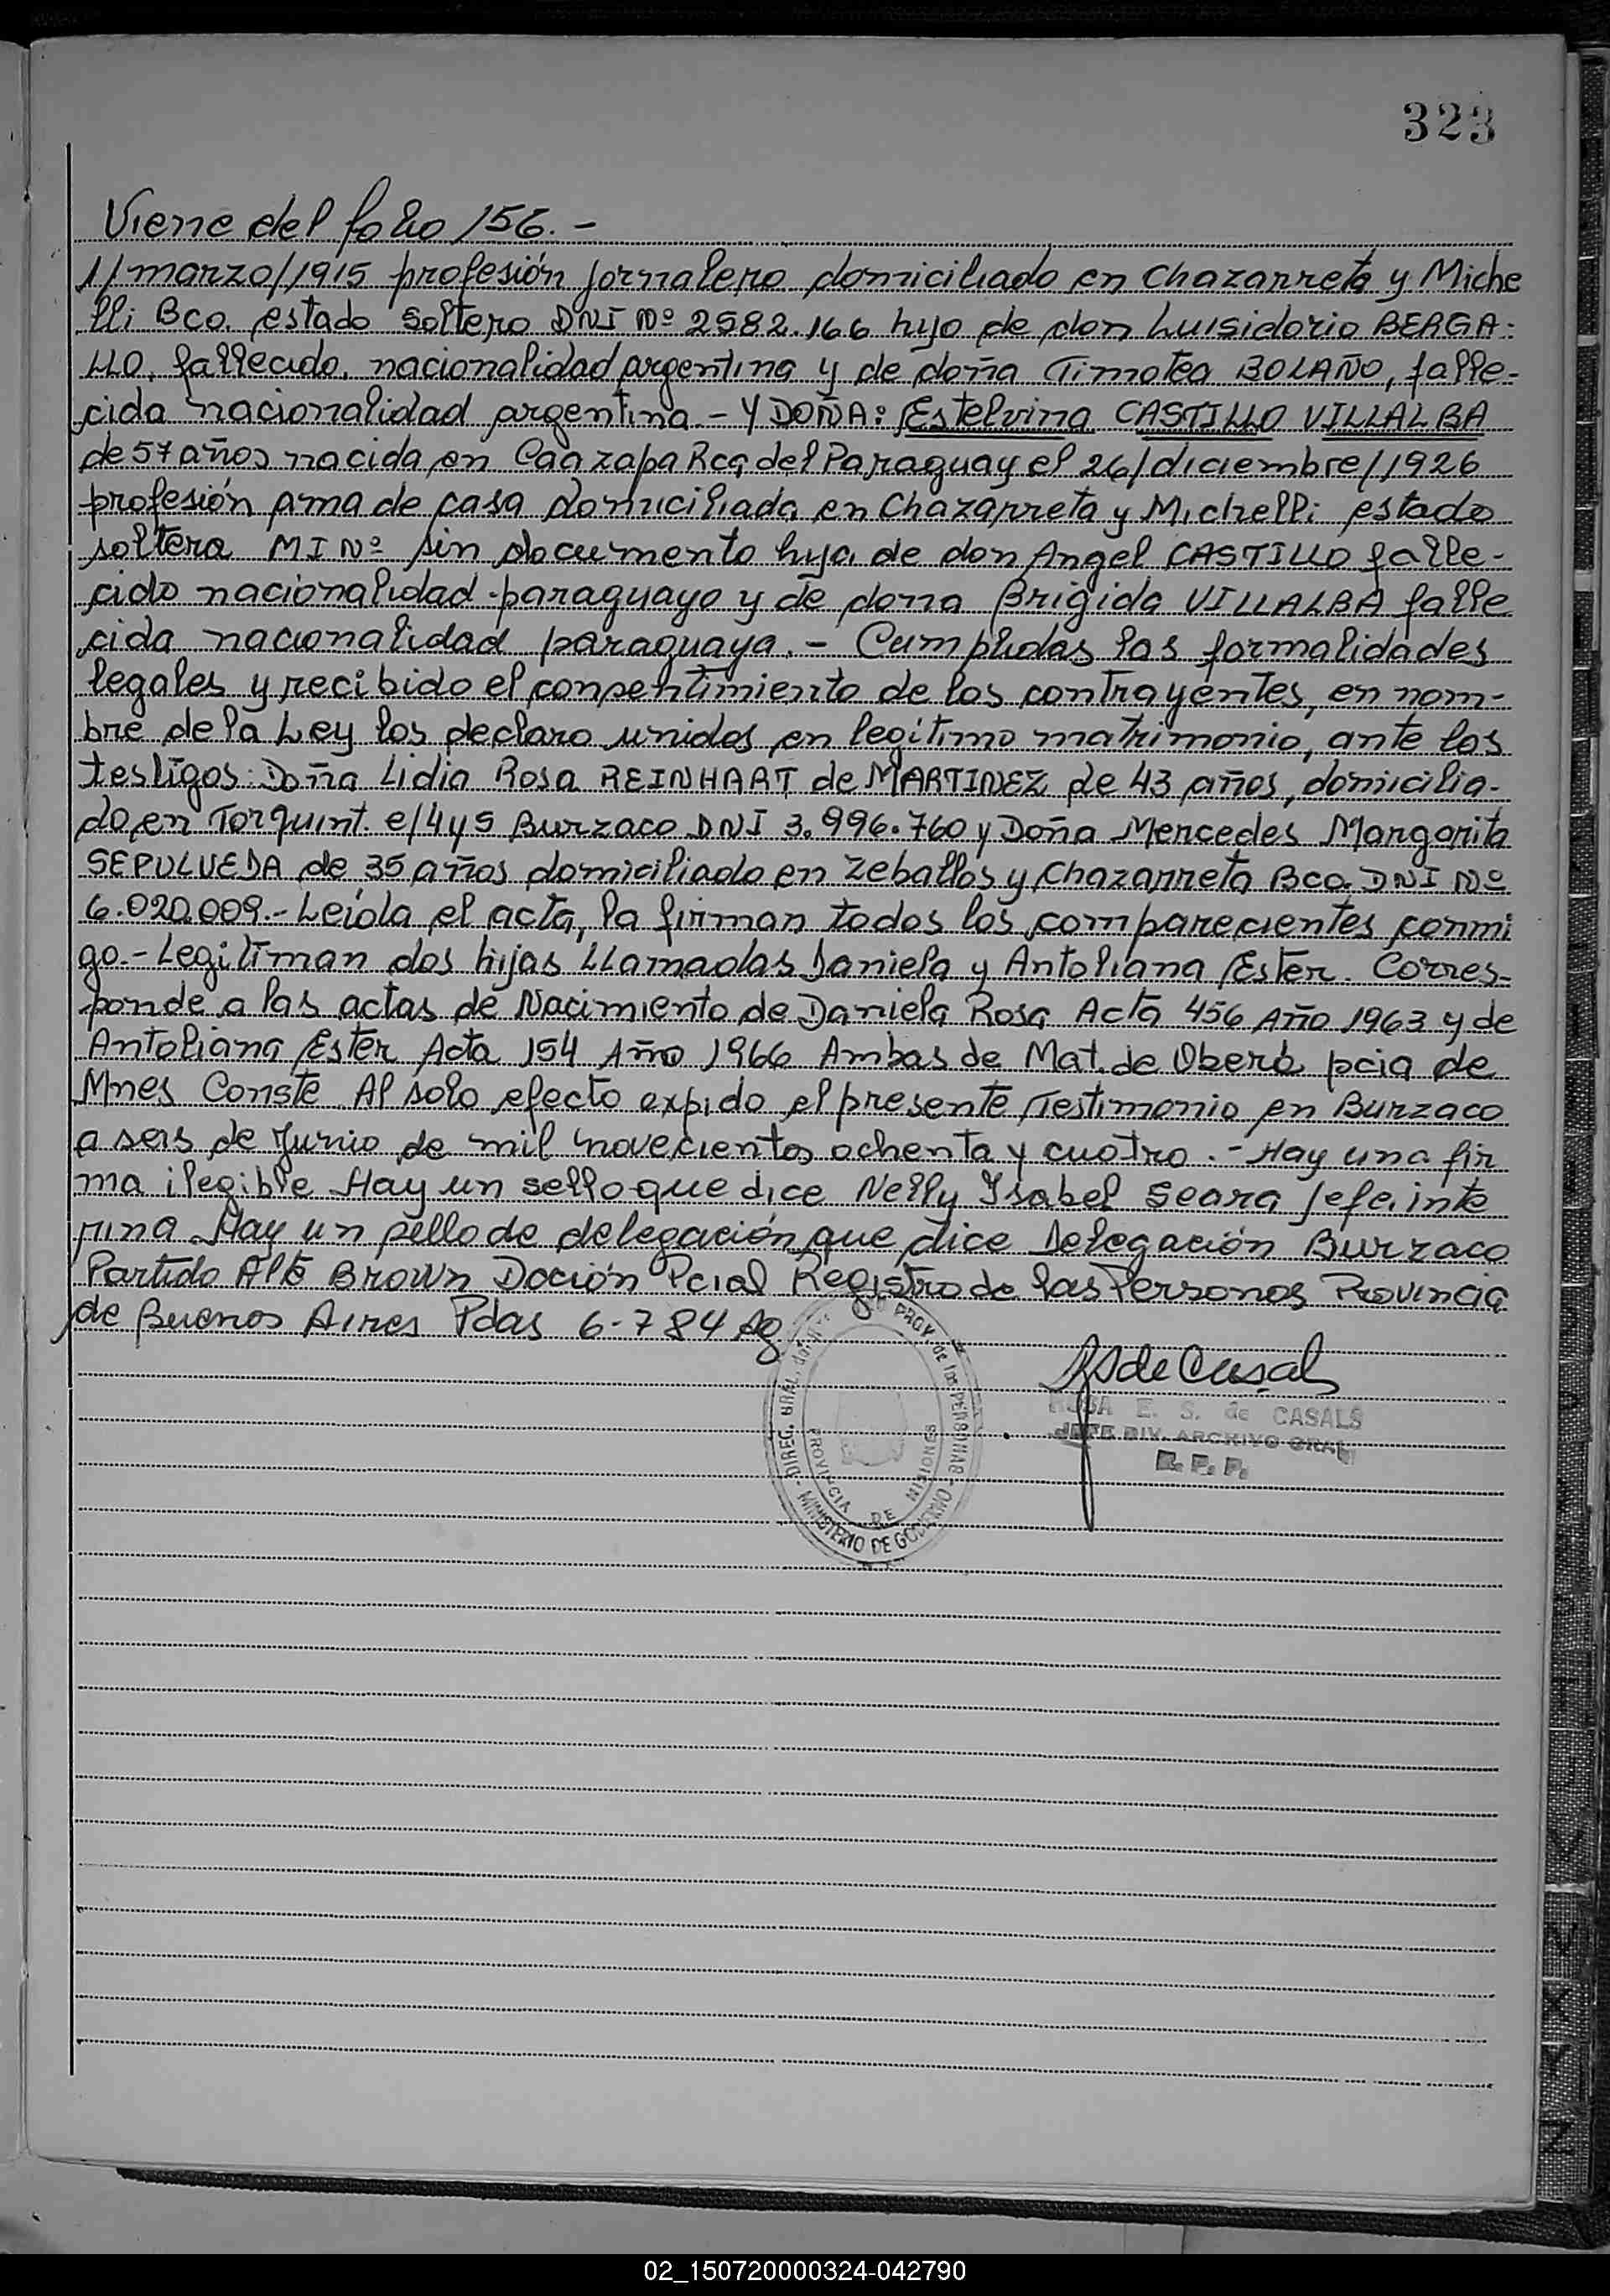 323
Viene del folio 156.-
1/marzo/1915 profesión jornalero domiciliado en Chazarreta y Miche
lli Bco. estado soltero DNI Nº 2582.166 hijo de don Luisidorio BERGA-
LLO, fallecido, nacionalidad argentina y de doña Timotea BOLAÑO, falle-
cida nacionalidad argentina.- Y DOÑA: Estelvina CASTILLO VILLALBA
de 57 años nacida en Caazapa Rca del Paraguay el 26/diciembre/1926
profesión ama de casa domiciliada en Chazarreta y Michelli estado
soltera MI Nº sin documento hija de don Angel CASTILLO falle-
cido nacionalidad paraguayo y de dona Brigida VILLALBA falle
cida nacionalidad paraguaya.- Cumplidas las formalidades
legales y recibido el consentimiento de los contrayentes, en nom-
bre de la Ley los declaro unidos en legitimo matrimonio, ante los
testigos: Doña Lidia Rosa REINHART de MARTINEZ de 43 años, domicilia-
do en Torquint. e/4 y 5 Burzaco DNI 3.996.760 y Doña Mercedes Margarita
SEPULVEDA de 35 años domiciliado en Zeballos y Chazarreta Bco. DNI Nº
6.020.009.- Leída el acta, la firman todos los comparecientes conmi
go.- Legitiman dos hijas LLamadas Daniela y Antoliana Ester. Corres-
ponde a las actas de Nacimiento de Daniela Rosa Acta 456 Año 1963 y de
Antoliana Ester Acta 154 Año 1966 Ambas de Mat. de Oberá pcia de
Mnes Conste Al solo efecto expido el presente Testimonio en Burzaco
a seis de Junio de mil novecientos ochenta y cuatro.- Hay una fir
ma ilegible Hay un sello que dice Nelly Ysabel Seara Jefe inte
rina Hay un sello de delegación que dice Delegación Burzaco
Partido Alte Brown Dcción Pcial Registro de las Personas Provincia
de Buenos Aires Pdas 6-784
RS de Casals
ROSA E. S. de CASALS
JEFE DIV. ARCHIVO GRAL
R. P. P.
DIREC. GRAL. PROV. DE las PERSONAS
MINISTERIO DE GOBIERNO
PROVINCIA DE MISIONES
02_150720000324-042790